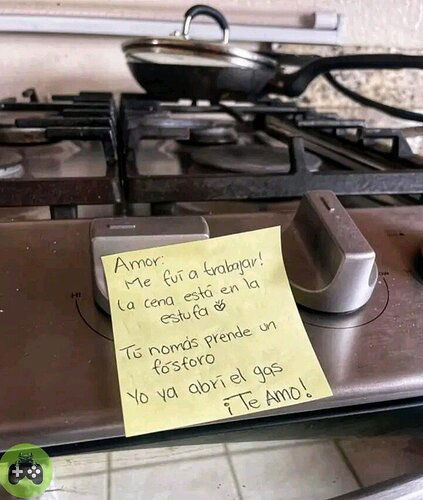 Amor:
Me fui a trabajar!
La cena está en la
estufa
Tú nomás prende un
fósforo
Yo ya abrí el gas
¡Te Amo!
HI